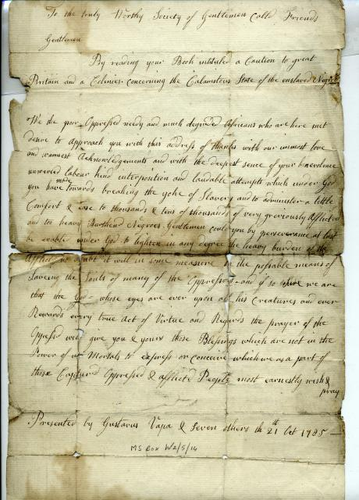 To the truly Worthy Society of Gentlemen Calld Friends
Gentlemen
By reading your Book intitulld a Caution to great
Britain and a Colonies concerning the Calamitous State of the enslaved Negroes
We the poor Oppressed needy and much degraded Africans who are here met
desire to approach you with this address of thanks with our inmost love
and warmest Acknowledgements and with the deepest sense of your benevolence
unwearied labour kind interposition and laudable attempts which under God
you have made towards breaking the yoke of Slavery and to administer a little
Comfort & ease to thousands & tens of thousands of very grievously Afflicted
and too heavy Burthend Negroes Gentlemen could you by perseverance at last
be enable under God to lighten in any degree the heavy burden of the
Afflicted no doubt it will in some measure be the possible means of
Saveing the Souls of many of the Oppressors and if so we are
that the God whose eyes are ever upon all his Creatures and ever
Rewards every true Act of Virtue and Regards the prayer of the
Oppressd will give you & yours those Blessings which are not in the
Power of us Mortals to express or conceive which we as a part of
those Captured Oppressed & afflicted People most earnestly wish &
pray
Presented by Gustavus Vasa & Seven others the 21st Oct 1785
MS Box W2/5/16